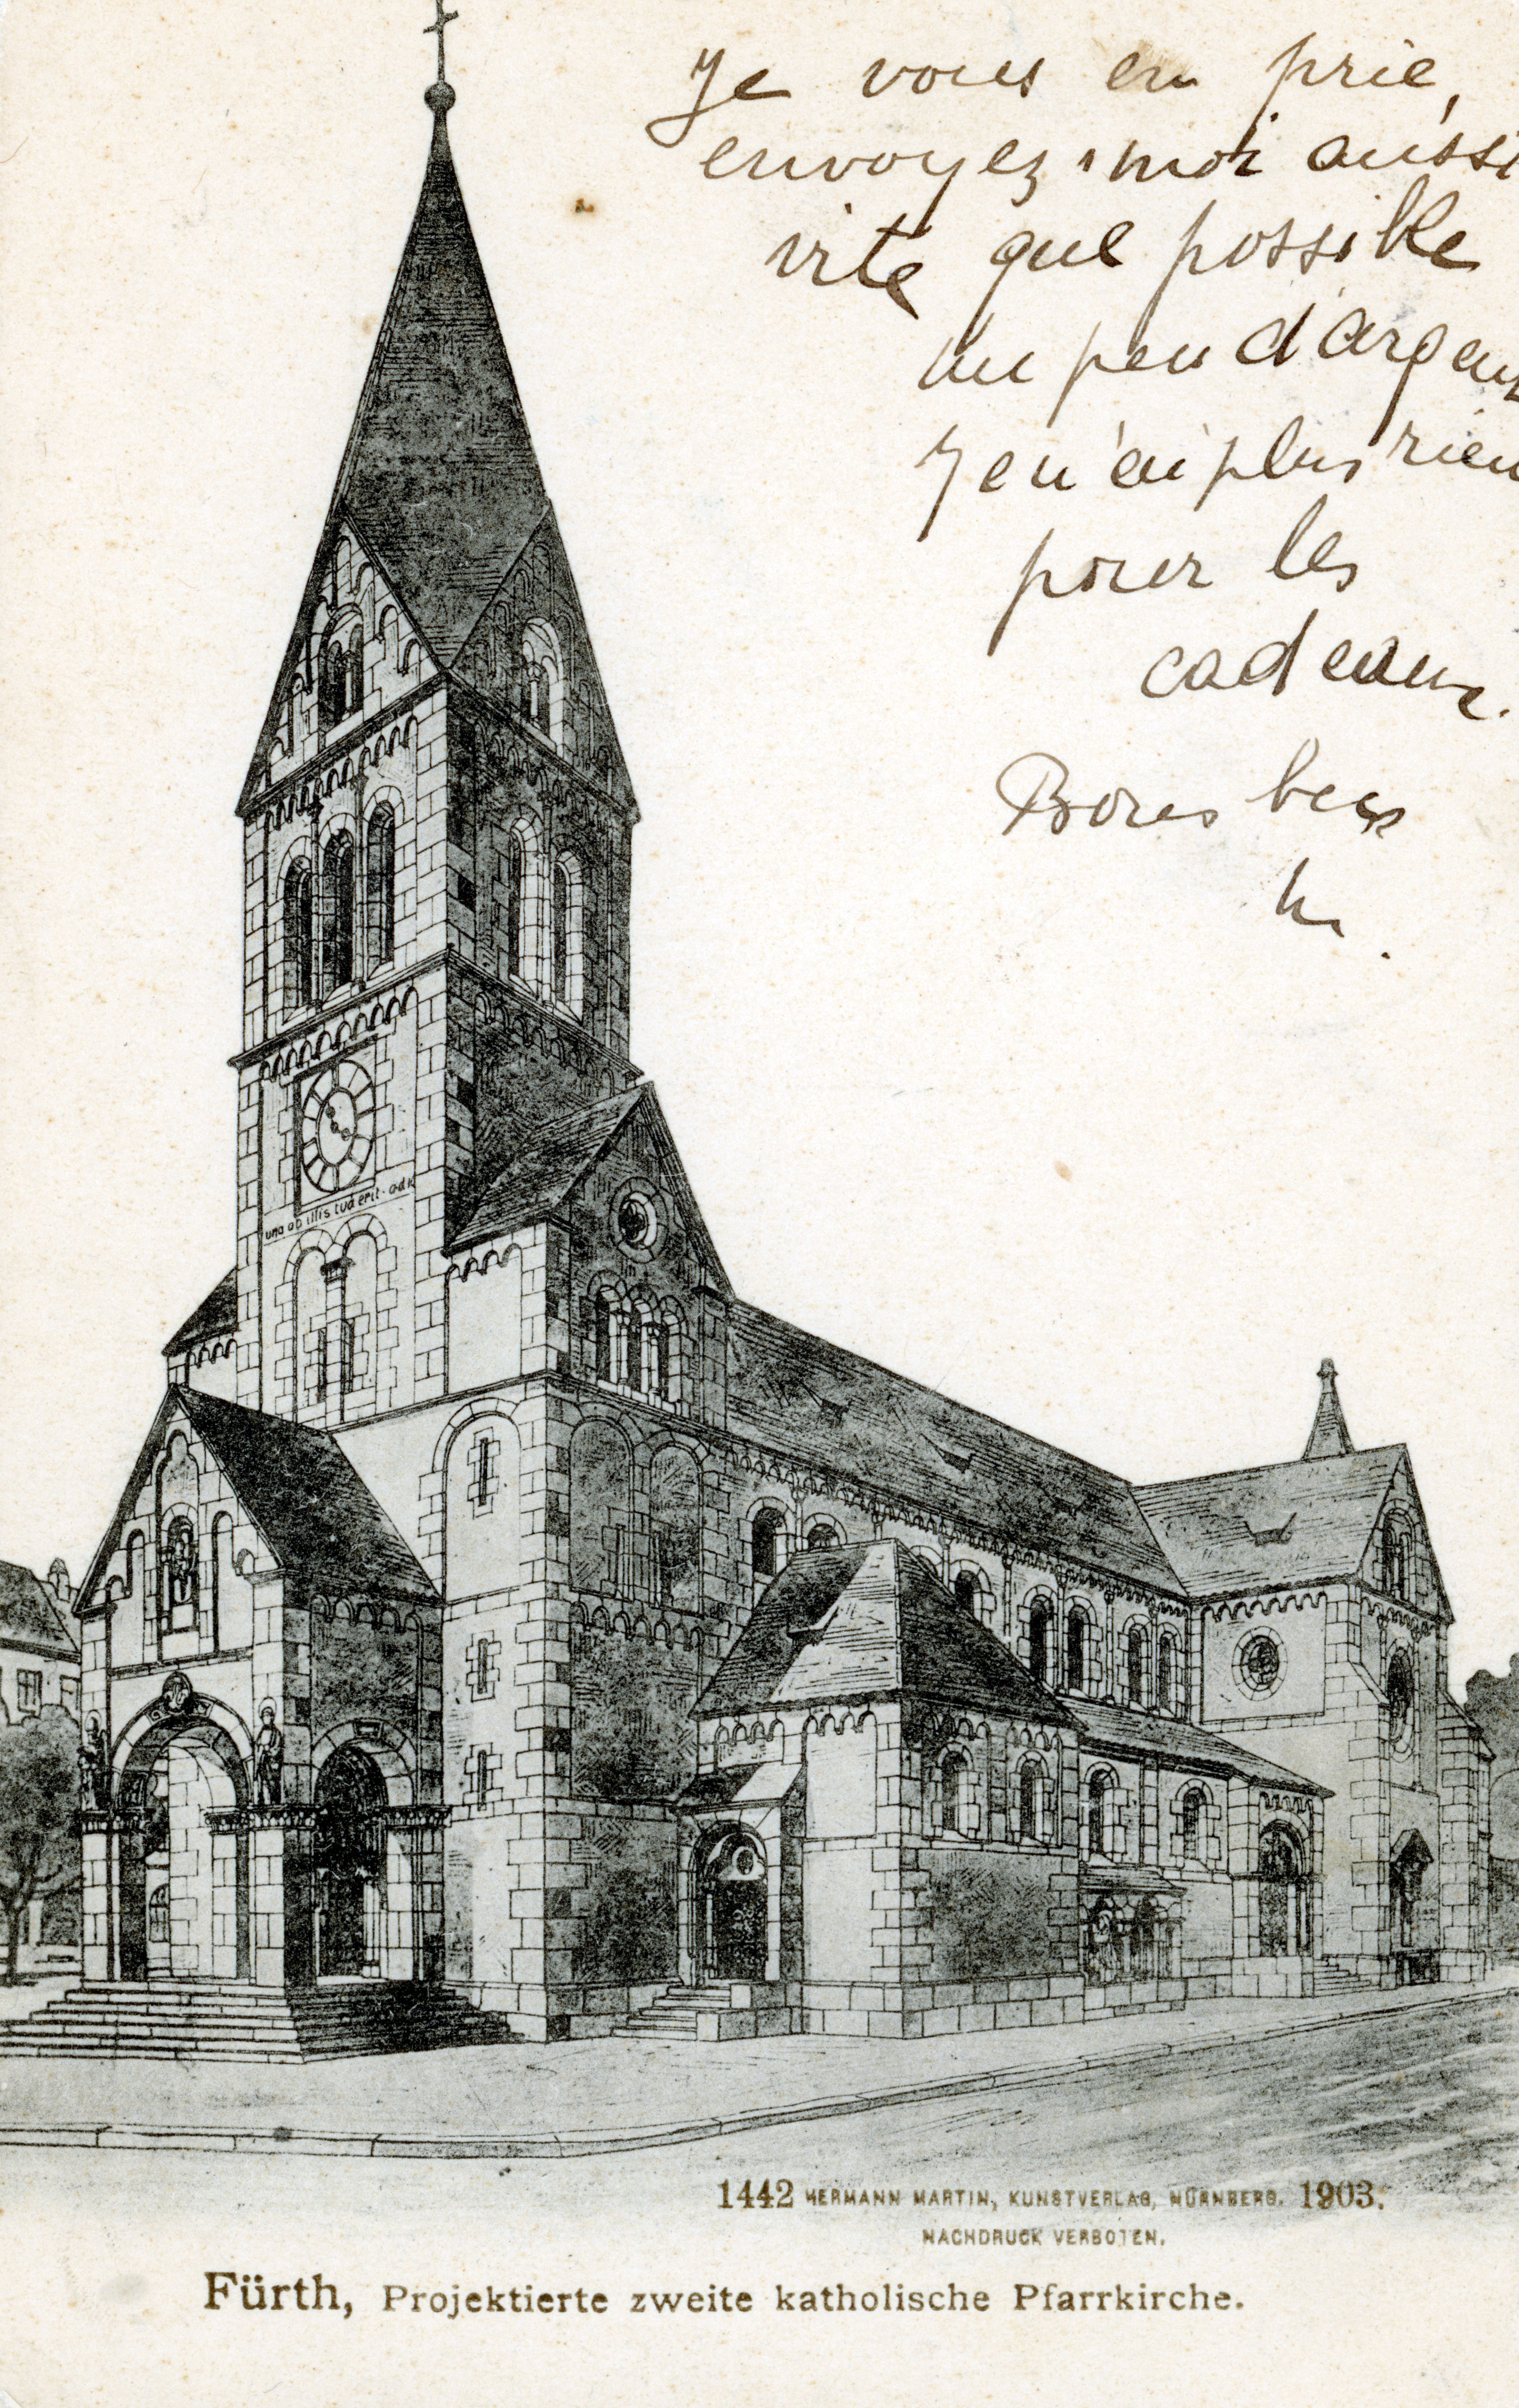 Je vous en prie,
envoyez-moi aussi
vite que possible
un peu d'argent
Je n'ai plus rien
pour les
cadeaux.
Bons
una ab illis tud erit.
1442 HERMANN MARTIN, KUNSTVERLAG, NÜRNBERG. 1903.
NACHDRUCK VERBOTEN.
Fürth, Projektierte zweite katholische Pfarrkirche.